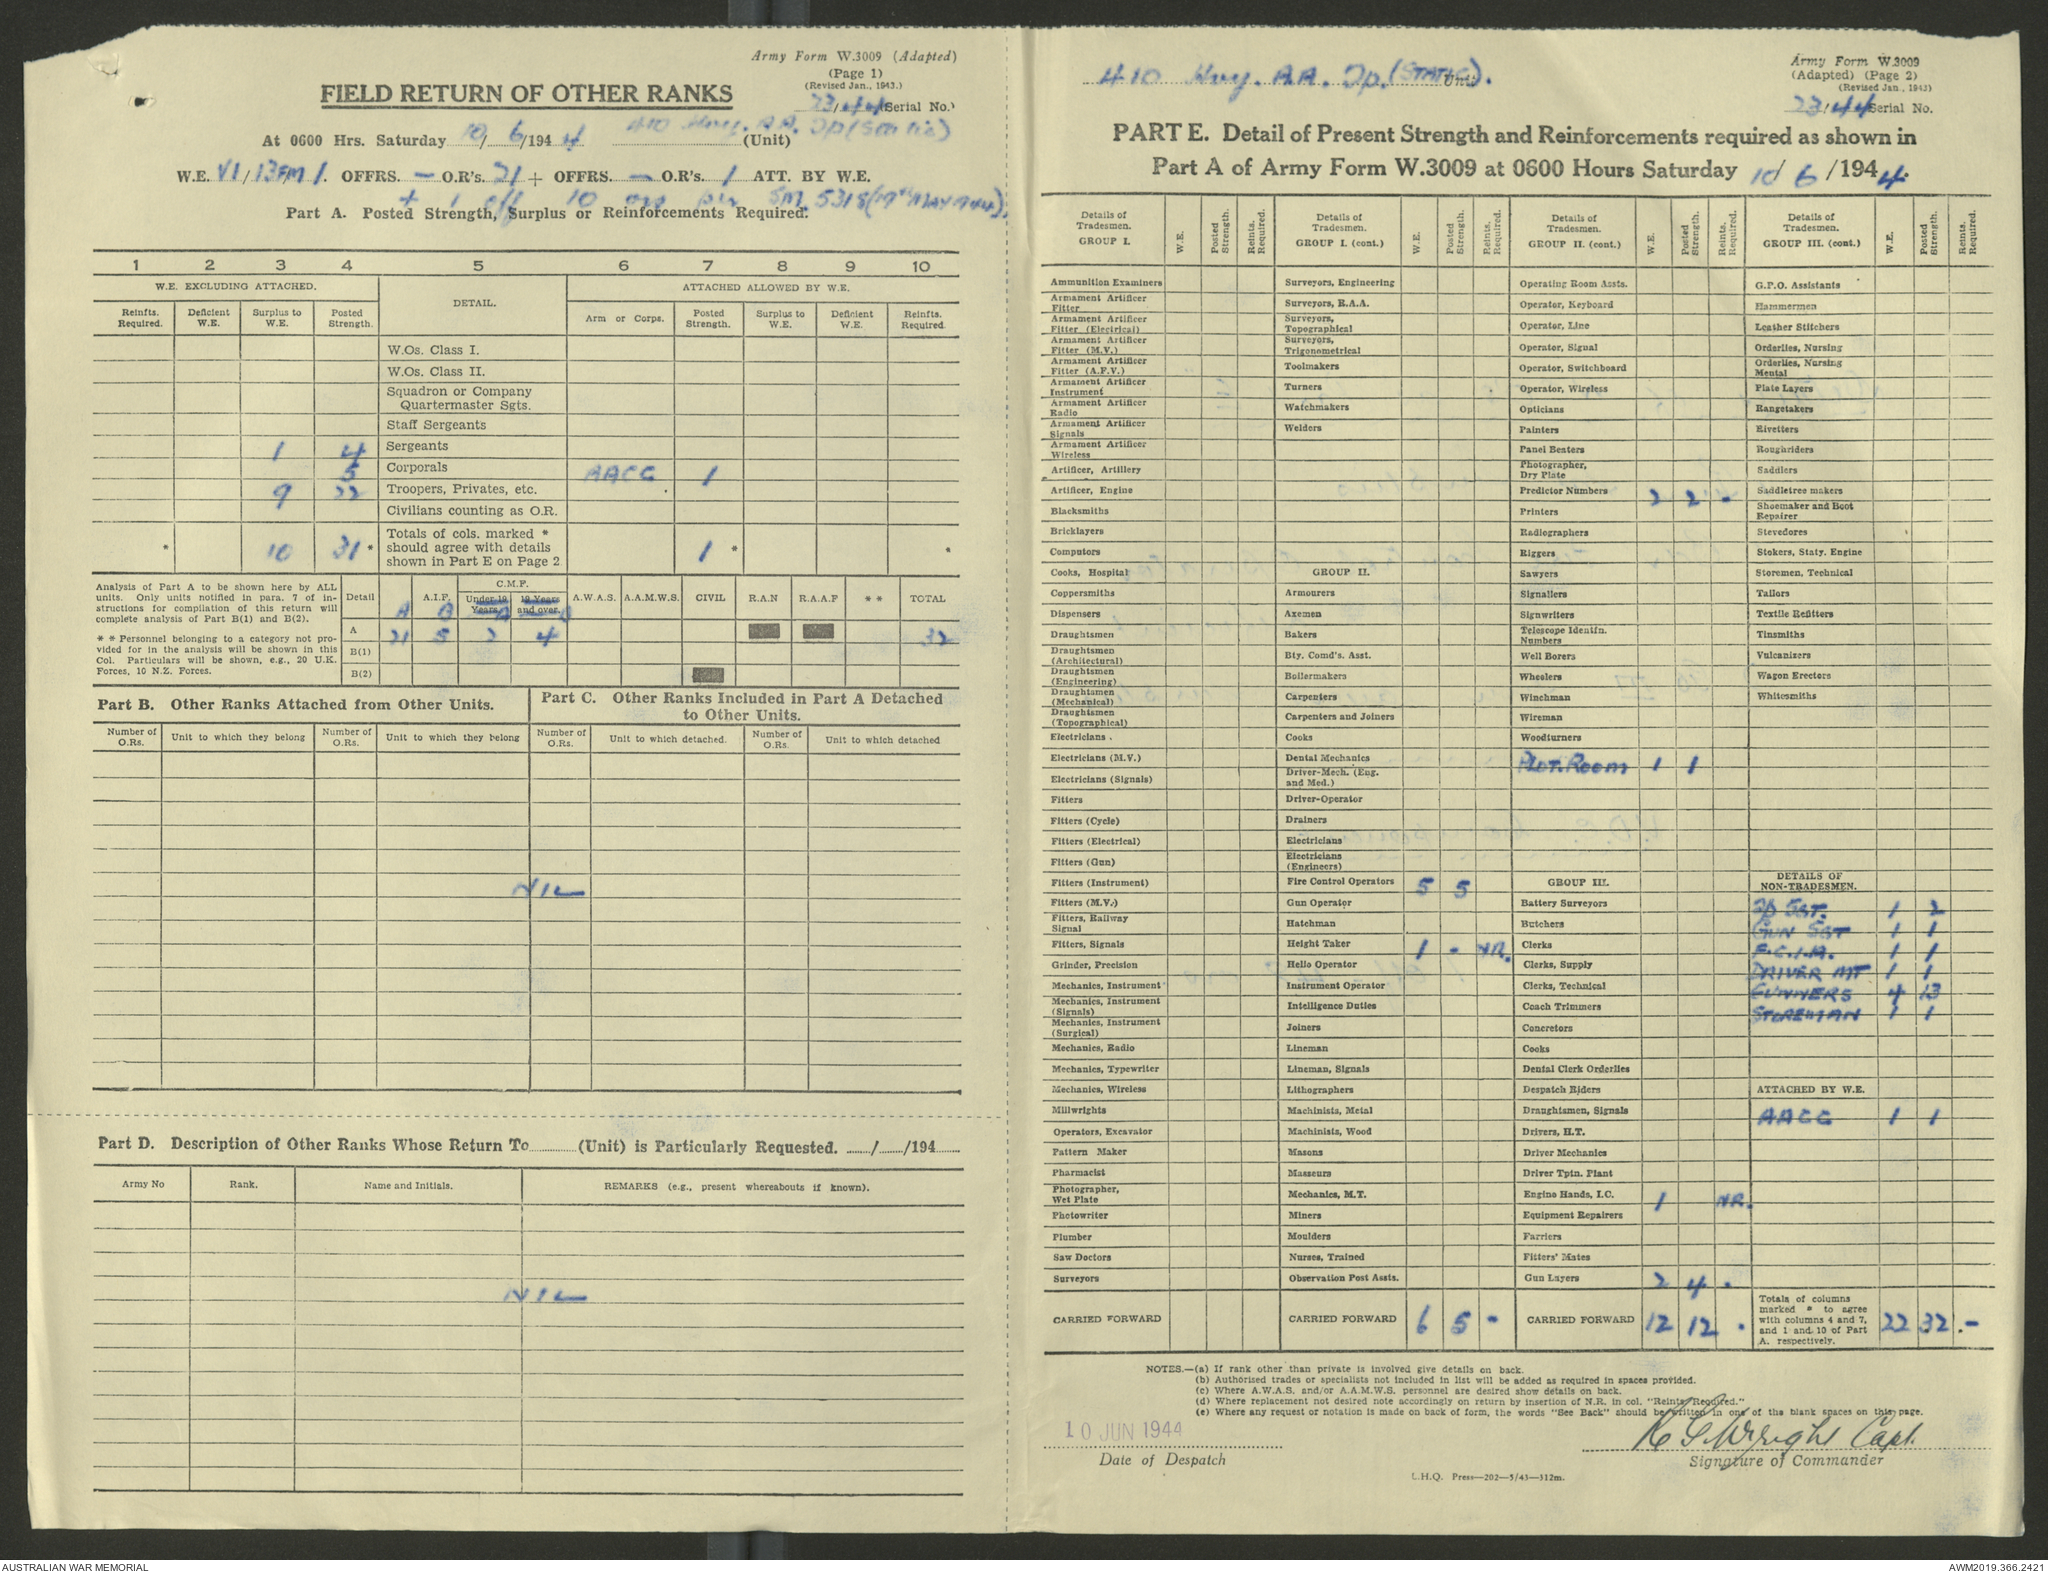 Army Form W.3009 (Adapted)
(Page 1)
(Revised Jan., 1943.)
FIELD RETURN OF OTHER RANKS
23/44 Serial No.
At 0600 Hrs. Saturday 10/6/1944 410 Hvy. AA. Tp (Static) (Unit)
W.E. VI/13FM/1. OFFRS. — O.R's. 21 + OFFRS. — O.R's. 1 ATT. BY W.E.
+ 1 off 10 ors per SM 5318 (17th MAY 1944).
Part A. Posted Strength, Surplus or Reinforcements Required.
1 2 3 4 5 6 7 8 9 10
W.E. EXCLUDING ATTACHED. DETAIL. ATTACHED ALLOWED BY W.E.
Reinfts. Required. Deficient W.E. Surplus to W.E. Posted Strength. Arm or Corps. Posted Strength. Surplus to W.E. Deficient W.E. Reinfts. Required.
W.Os. Class I.
W.Os. Class II.
Squadron or Company
Quartermaster Sgts.
Staff Sergeants
1 4 Sergeants
5 Corporals AACC 1
9 22 Troopers, Privates, etc.
Civilians counting as O.R.
* 10 31 * Totals of cols. marked * should agree with details shown in Part E on Page 2 1 * *
Analysis of Part A to be shown here by ALL
units. Only units notified in para. 7 of in-
structions for compilation of this return will
complete analysis of Part B(1) and B(2).
* * Personnel belonging to a category not pro-
vided for in the analysis will be shown in this
Col. Particulars will be shown, e.g., 20 U.K.
Forces, 10 N.Z. Forces.
Detail A.I.F. C.M.F. Under 19 Years 19 Years and over. A.W.A.S. A.A.M.W.S. CIVIL R.A.N R.A.A.F * * TOTAL
A B A B
A 21 5 2 4 32
B(1)
B(2)
Part B. Other Ranks Attached from Other Units.
Part C. Other Ranks Included in Part A Detached
to Other Units.
Number of O.Rs. Unit to which they belong Number of O.Rs. Unit to which they belong Number of O.Rs. Unit to which detached. Number of O.Rs. Unit to which detached
NIL
Part D. Description of Other Ranks Whose Return To (Unit) is Particularly Requested. / /194
Army No Rank. Name and Initials. REMARKS (e.g., present whereabouts if known).
NIL
410 Hvy. AA. Tp. (STATIC). Unit
Army Form W.3009
(Adapted) (Page 2)
(Revised Jan., 1943)
23/44 Serial No.
PART E. Detail of Present Strength and Reinforcements required as shown in
Part A of Army Form W.3009 at 0600 Hours Saturday 10/6/1944.
Details of Tradesmen. GROUP I. W.E. Posted Strength. Reints. Required.
Ammunition Examiners
Armament Artificer Fitter
Armament Artificer Fitter (Electrical)
Armament Artificer Fitter (M.V.)
Armament Artificer Fitter (A.F.V.)
Armament Artificer Instrument
Armament Artificer Radio
Armament Artificer Signals
Armament Artificer Wireless
Artificer, Artillery
Artificer, Engine
Blacksmiths
Bricklayers
Computors
Cooks, Hospital
Coppersmiths
Dispensers
Draughtsmen
Draughtsmen (Architectural)
Draughtsmen (Engineering)
Draughtsmen (Mechanical)
Draughtsmen (Topographical)
Electricians .
Electricians (M.V.)
Electricians (Signals)
Fitters
Fitters (Cycle)
Fitters (Electrical)
Fitters (Gun)
Fitters (Instrument)
Fitters (M.V.)
Fitters, Railway Signal
Fitters, Signals
Grinder, Precision
Mechanics, Instrument
Mechanics, Instrument (Signals)
Mechanics, Instrument (Surgical)
Mechanics, Radio
Mechanics, Typewriter
Mechanics, Wireless
Millwrights
Operators, Excavator
Pattern Maker
Pharmacist
Photographer, Wet Plate
Photowriter
Plumber
Saw Doctors
Surveyors
CARRIED FORWARD
Details of Tradesmen. GROUP I. (cont.) W.E. Posted Strength. Reints. Required.
Surveyors, Engineering
Surveyors, R.A.A.
Surveyors, Topographical
Surveyors, Trigonometrical
Toolmakers
Turners
Watchmakers
Welders
GROUP II.
Armourers
Axemen
Bakers
Bty. Comd's. Asst.
Boilermakers
Carpenters
Carpenters and Joiners
Cooks
Dental Mechanics
Driver-Mech. (Eng. and Med.)
Driver-Operator
Drainers
Electricians
Electricians (Engineers)
Fire Control Operators 5 5
Gun Operator
Hatchman
Height Taker 1 - NR.
Helio Operator
Instrument Operator
Intelligence Duties
Joiners
Lineman
Lineman, Signals
Lithographers
Machinists, Metal
Machinists, Wood
Masons
Masseurs
Mechanics, M.T.
Miners
Moulders
Nurses, Trained
Observation Post Assts.
CARRIED FORWARD 6 5 -
Details of Tradesmen. GROUP II. (cont.) W.E. Posted Strength. Reints. Required.
Operating Room Assts.
Operator, Keyboard
Operator, Line
Operator, Signal
Operator, Switchboard
Operator, Wireless
Opticians
Painters
Panel Beaters
Photographer, Dry Plate
Predictor Numbers 2 2 -
Printers
Radiographers
Riggers
Sawyers
Signallers
Signwriters
Telescope Identfn. Numbers
Well Borers
Wheelers
Winchman
Wireman
Woodturners
PLOT. ROOM 1 1
GROUP III.
Battery Surveyors
Butchers
Clerks
Clerks, Supply
Clerks, Technical
Coach Trimmers
Concretors
Cooks
Dental Clerk Orderlies
Despatch Riders
Draughtsmen, Signals
Drivers, H.T.
Driver Mechanics
Driver Tptn. Plant
Engine Hands, I.C. 1 NR.
Equipment Repairers
Farriers
Fitters' Mates
Gun Layers 2 4 .
CARRIED FORWARD 12 12 .
Details of Tradesmen. GROUP III. (cont.) W.E. Posted Strength. Reints. Required.
G.P.O. Assistants
Hammermen
Leather Stitchers
Orderlies, Nursing
Orderlies, Nursing Mental
Plate Layers
Rangetakers
Rivetters
Roughriders
Saddlers
Saddletree makers
Shoemaker and Boot Repairer
Stevedores
Stokers, Staty. Engine
Storemen, Technical
Tailors
Textile Refitters
Tinsmiths
Vulcanizers
Wagon Erectors
Whitesmiths
DETAILS OF NON-TRADESMEN.
Tp SGT. 1 2
GUN SGT 1 1
F.C.I.A. 1 1
DRIVER MT 1 1
GUNNERS 4 13
STOREMAN 1 1
ATTACHED BY W.E.
AACC 1 1
Totals of columns marked * to agree with columns 4 and 7, and 1 and 10 of Part A. respectively. 22 32 . -
NOTES.—(a) If rank other than private is involved give details on back.
(b) Authorised trades or specialists not included in list will be added as required in spaces provided.
(c) Where A.W.A.S. and/or A.A.M.W.S. personnel are desired show details on back.
(d) Where replacement not desired note accordingly on return by insertion of N.R. in col. "Reints Required."
(e) Where any request or notation is made on back of form, the words "See Back" should be written in one of the blank spaces on this page.
10 JUN 1944
Date of Despatch
Wright Capt.
Signature of Commander
L.H.Q. Press—202—5/43—312m.
AUSTRALIAN WAR MEMORIAL
AWM2019.366.2421